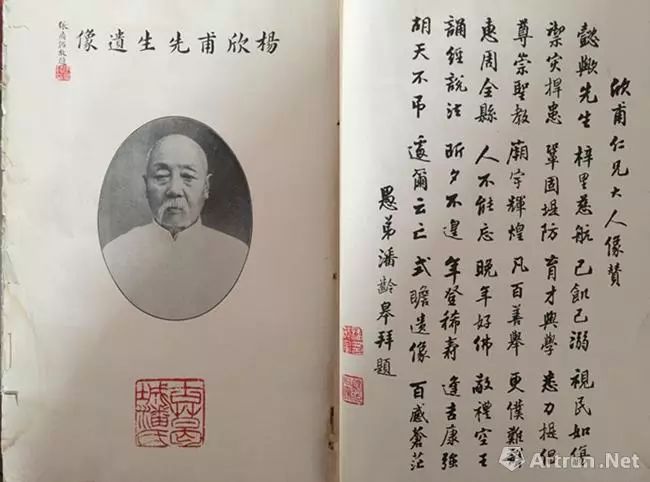 欣甫仁兄大人像贊
懿歟先生 梓里慈航 己飢己溺 視民如傷
禦災捍患 鞏固堤防 育才興學 悉力提倡
尊崇聖教 廟宇輝煌 凡百善舉 更僕難詳
惠周全縣 人不能忘 晚年好佛 敬禮空王
誦經說法 昕夕不遑 年登稀壽 逢吉康強
胡天不弔 遽爾云亡 式瞻遺像 百感蒼茫
愚弟潘齡皋拜題
楊欣甫先生遺像
張敬題
古葛城潘氏
Artron.Net